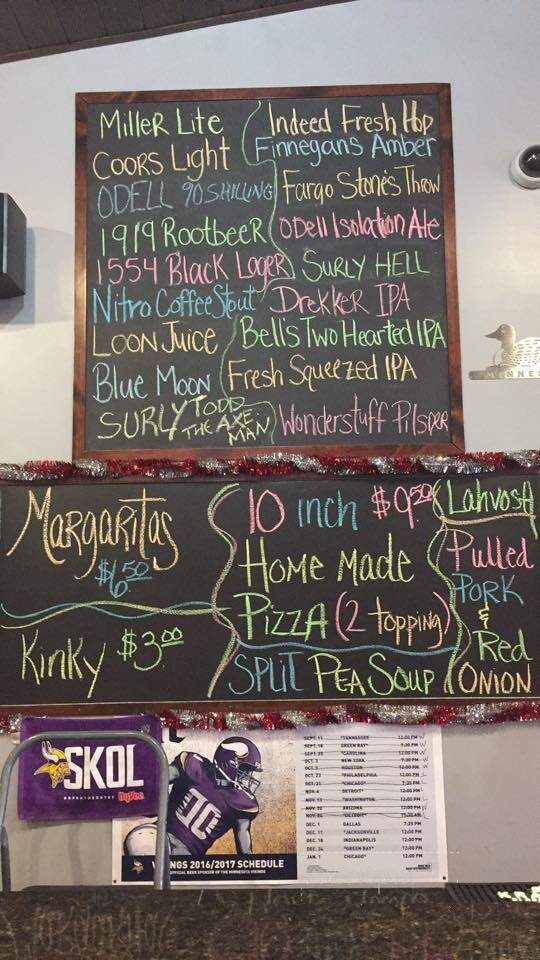 Miller Lite
Coors Light
ODELL 90 SHILLING
1919 Rootbeer
1554 Black Lager
Nitro Coffee Stout
Loon Juice
Blue Moon
SURLY TODD THE AXE MAN
Indeed Fresh Hop
Finnegans Amber
Fargo Stone's Throw
Odell Isolation Ale
Surly Hell
Drekker IPA
Bell's Two Hearted IPA
Fresh Squeezed IPA
Wonderstuff Pilsner
Margaritas
$6.50
Kinky $3.00
10 inch $9.50
Home Made
Pizza (2 topping)
Split Pea Soup
Lahvosh
Pulled
Pork
&
Red
Onion
NNES
SKOL
HyVee
30
NGS 2016/2017 SCHEDULE
OFFICIAL BEER SPONSOR OF THE MINNESOTA VIKINGS
SEPT. 11 *TENNESSEE 12:00 PM W
SEPT. 18 GREEN BAY* 7:30 PM W
SEPT. 25 *CAROLINA 12:00 PM W
OCT. 3 NEW YORK 7:30 PM W
OCT. 9 HOUSTON 12:00 PM W
OCT. 23 *PHILADELPHIA 12:00 PM L
OCT. 31 *CHICAGO* 7:30 PM L
NOV. 6 DETROIT* 12:00 PM L
NOV. 13 *WASHINGTON 12:00 PM
NOV. 20 ARIZONA 12:00 PM
NOV. 24 *DETROIT* 11:30 AM
DEC. 1 DALLAS 7:25 PM
DEC. 11 *JACKSONVILLE 12:00 PM
DEC. 18 INDIANAPOLIS 12:00 PM
DEC. 24 *GREEN BAY* 12:00 PM
JAN. 1 CHICAGO* 12:00 PM